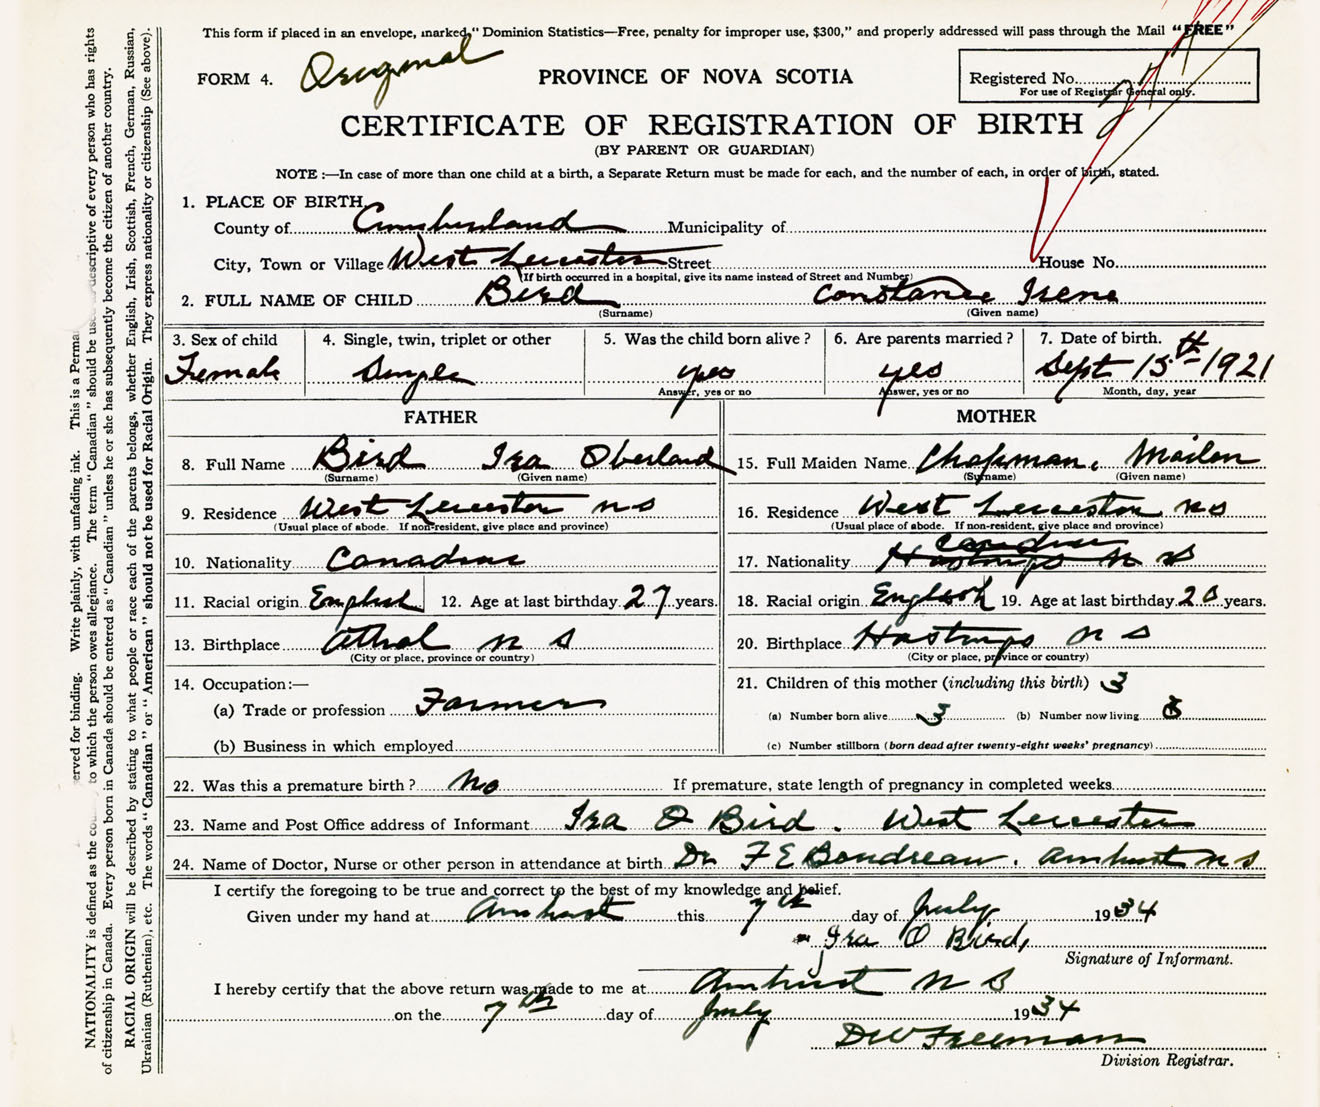 This form if placed in an envelope, marked, "Dominion Statistics—Free, penalty for improper use, $300," and properly addressed will pass through the Mail "FREE"
FORM 4. Original PROVINCE OF NOVA SCOTIA
Registered No.
For use of Registrar General only.
CERTIFICATE OF REGISTRATION OF BIRTH
(BY PARENT OR GUARDIAN)
NOTE :—In case of more than one child at a birth, a Separate Return must be made for each, and the number of each, in order of birth, stated.
1. PLACE OF BIRTH
County of Cumberland Municipality of
City, Town or Village West Leicester Street House No.
(If birth occurred in a hospital, give its name instead of Street and Number)
2. FULL NAME OF CHILD Bird Constance Irene
(Surname) (Given name)
3. Sex of child 4. Single, twin, triplet or other 5. Was the child born alive ? 6. Are parents married ? 7. Date of birth.
Female Single yes yes Sept 15th 1921
Answer, yes or no Answer, yes or no Month, day, year
FATHER MOTHER
8. Full Name Bird Ira Oberland 15. Full Maiden Name Chapman, Mailen
(Surname) (Given name) (Surname) (Given name)
9. Residence West Leicester N S 16. Residence West Leicester N S
(Usual place of abode. If non-resident, give place and province) (Usual place of abode. If non-resident, give place and province)
10. Nationality Canadian 17. Nationality Canadian Hastings N S
11. Racial origin English 12. Age at last birthday 27 years. 18. Racial origin English 19. Age at last birthday years.
13. Birthplace Athol N S 20. Birthplace Hastings N S
(City or place, province or country) (City or place, province or country)
14. Occupation:— 21. Children of this mother (including this birth) 3
(a) Trade or profession Farmer (a) Number born alive 3 (b) Number now living
(b) Business in which employed (c) Number stillborn (born dead after twenty-eight weeks' pregnancy)
22. Was this a premature birth ? No If premature, state length of pregnancy in completed weeks
23. Name and Post Office address of Informant Ira O Bird. West Leicester
24. Name of Doctor, Nurse or other person in attendance at birth Dr F E Boudreau. Amherst N S
I certify the foregoing to be true and correct to the best of my knowledge and belief.
Given under my hand at Amherst this 7th day of July 1934
Ira O Bird,
Signature of Informant.
I hereby certify that the above return was made to me at Amherst N S
on the 7th day of July 1934
D W Freeman
Division Registrar.
erved for binding. Write plainly, with unfading ink. This is a Perma
NATIONALITY is defined as the cou to which the person owes allegiance. The term "Canadian" should be used descriptive of every person who has rights
of citizenship in Canada. Every person born in Canada should be entered as "Canadian" unless he or she has subsequently become the citizen of another country.
RACIAL ORIGIN will be described by stating to what people or race each of the parents belongs, whether English, Irish, Scottish, French, German, Russian,
Ukrainian (Ruthenian), etc. The words "Canadian" or "American" should not be used for Racial Origin. They express nationality or citizenship (See above).